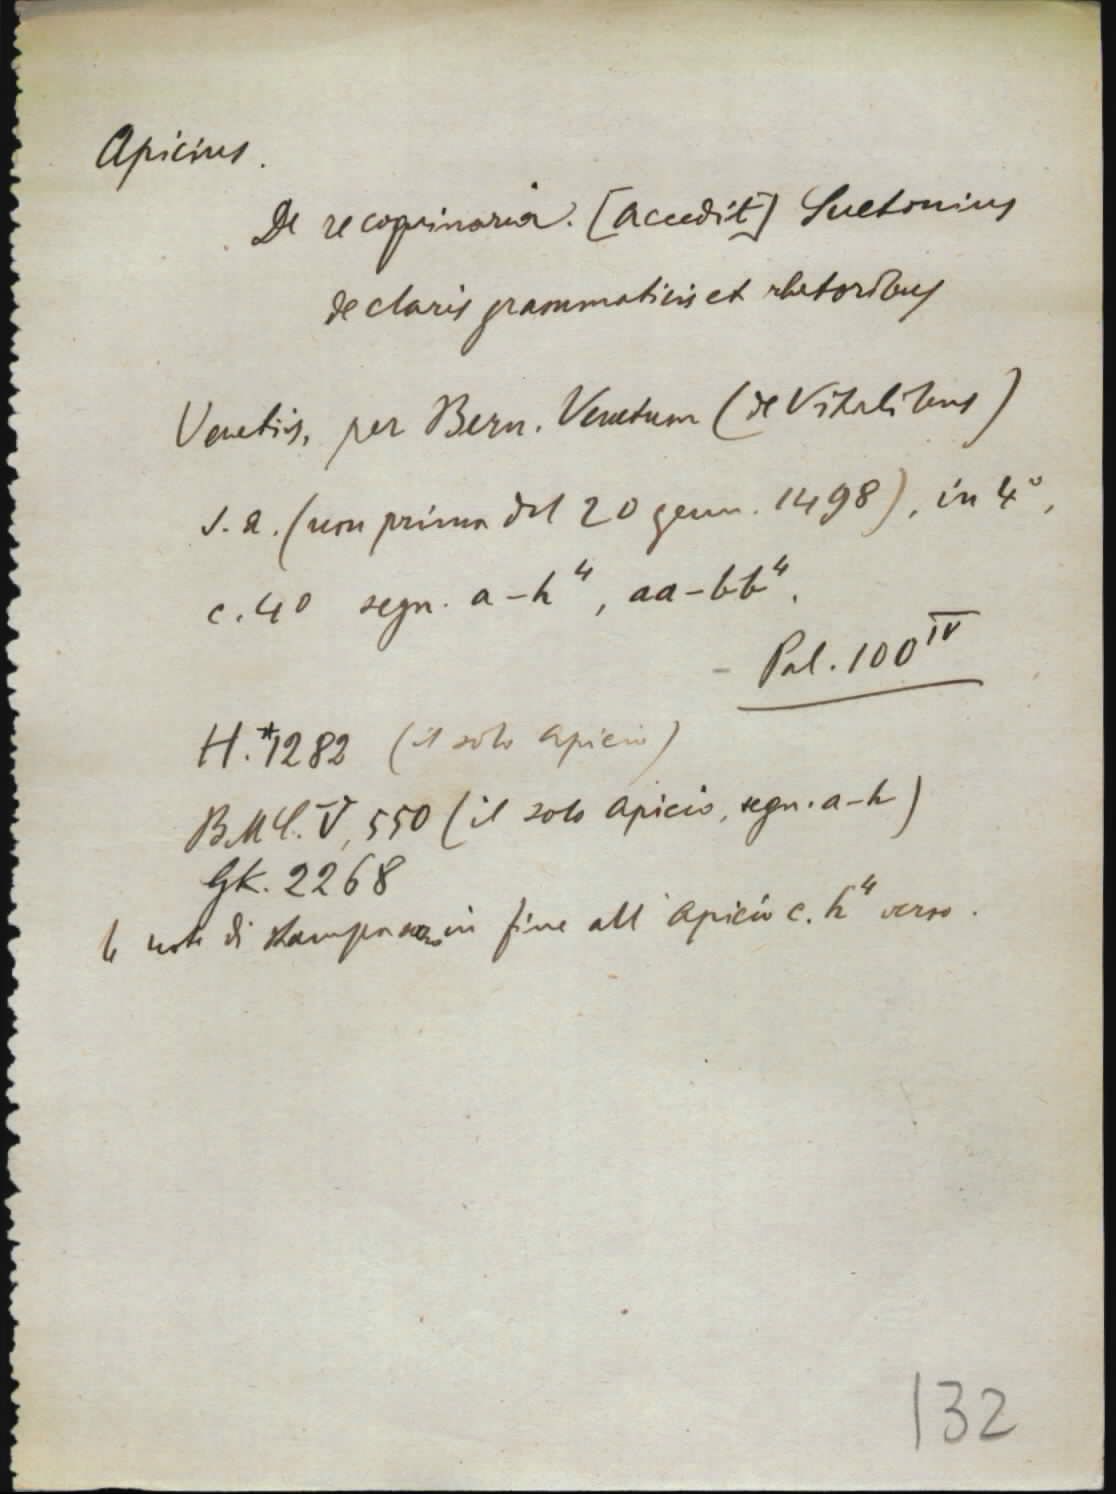 Apicius.
De re coquinaria. [Accedit] Suetonius
de claris grammaticis et rhetoribus
Venetiis, per Bern. Venetum (de Vitalibus)
s. a. (non prima del 20 genn. 1498), in 4°,
c. 40 segn. a-h⁴, aa-bb⁴.
- Pal. 100 IV
H. *1282 (il solo Apicio)
BMC. V, 550 (il solo Apicio, segn. a-h)
GK. 2268
le note di stampa in fine all'Apicio c. h⁴ verso.
132